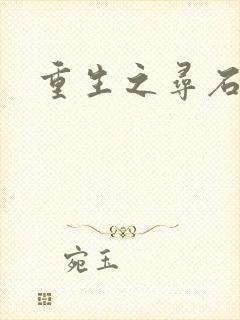 重生之寻石
宛玉